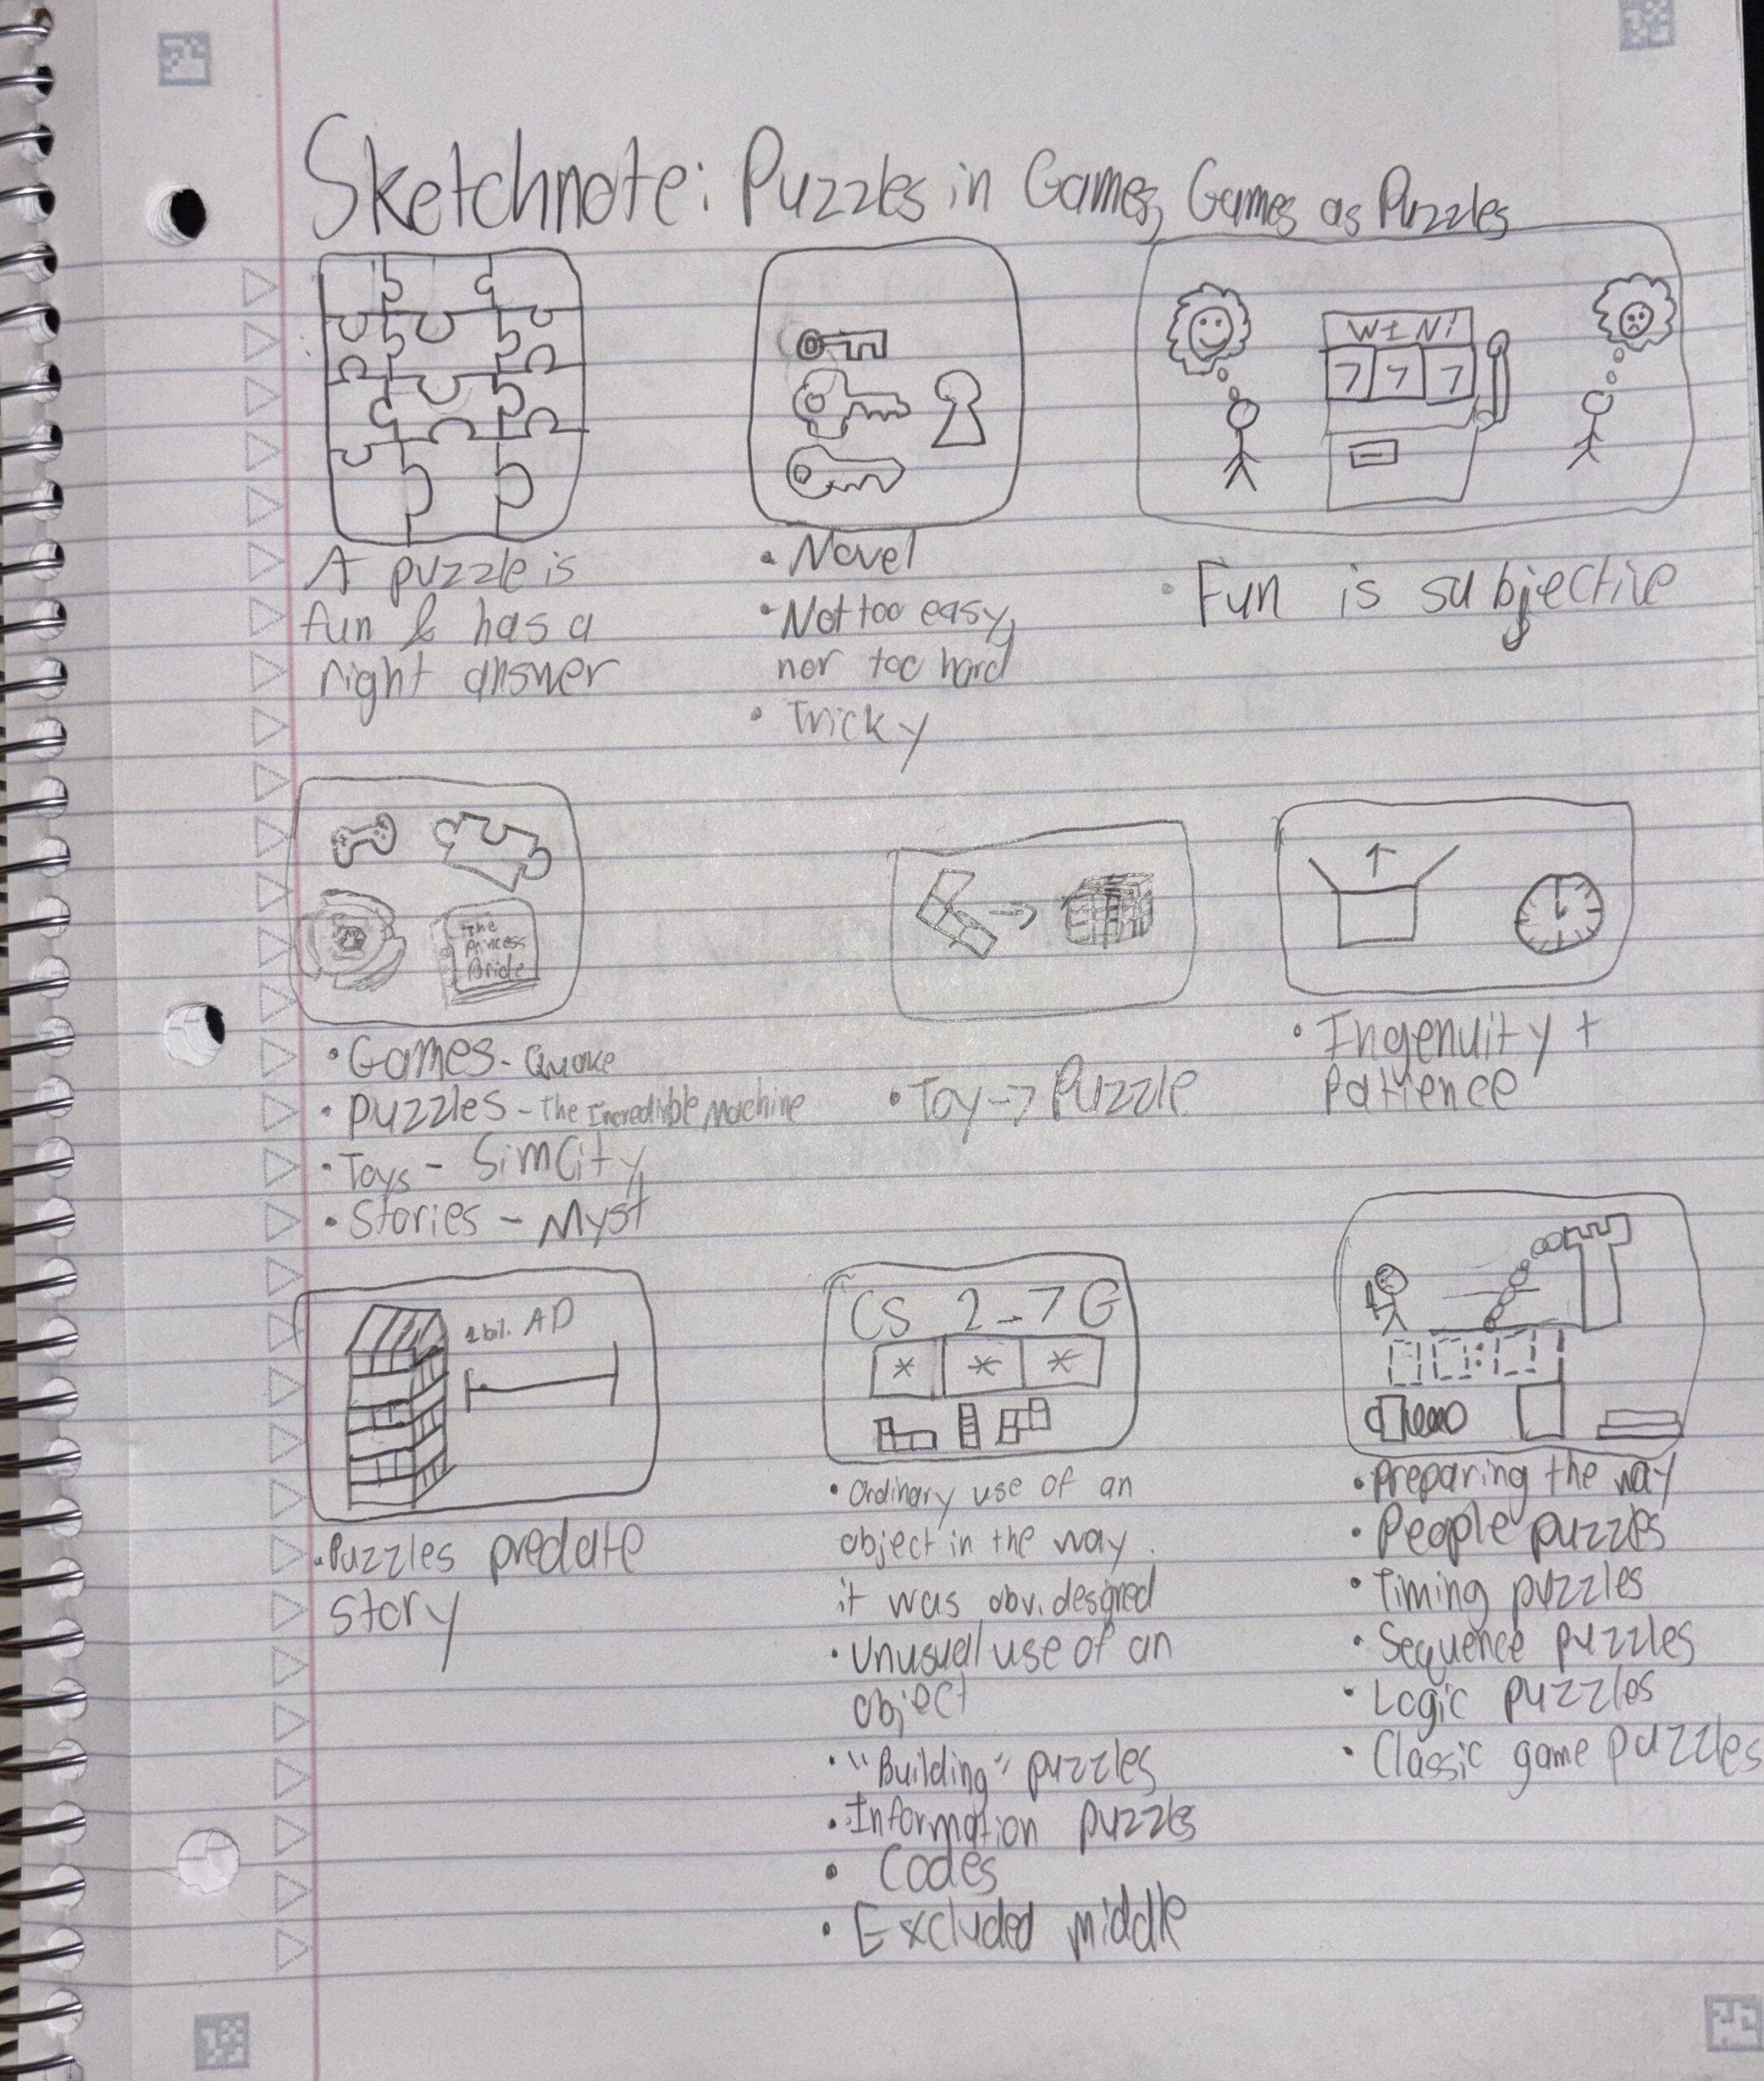 Sketchnote: Puzzles in Games, Games as Puzzles
WIN!
7 7 7
A puzzle is
fun & has a
right answer
• Novel
• Not too easy,
nor too hard
• Tricky
• Fun is subjective
The
Princess
Bride
• Games - Quake
• Puzzles - The Incredible Machine
• Toys - SimCity
• Stories - Myst
• Toy -> Puzzle
• Ingenuity +
Patience
AD
• Puzzles predate
story
CS 2_7 G
* * *
• Ordinary use of an
object in the way
it was obv. designed
• Unusual use of an
object
• "Building" puzzles
• Information puzzles
• Codes
• Excluded middle
• Preparing the way
• People puzzles
• Timing puzzles
• Sequence puzzles
• Logic puzzles
• Classic game puzzles